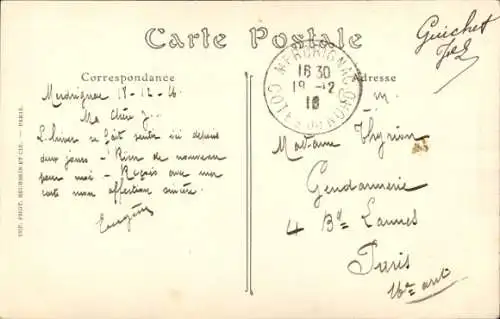 Carte Postale
Guichet
Correspondance
Adresse
MERDRIGNAC
16 30
19 - 12
16
COTES DU NORD
Merdrignac 18-12-16
Ma chère J...
L'hiver se fait sentir ici depuis
deux jours - Rien de nouveau
pour moi - Reçois avec ma
carte mon affection sincère.
Eugène
Madame Thyrion
Gendarmerie
4 Bd Lannes
Paris
16e arrt
IMP. PHOT. NEURDEIN ET CIE. — PARIS.